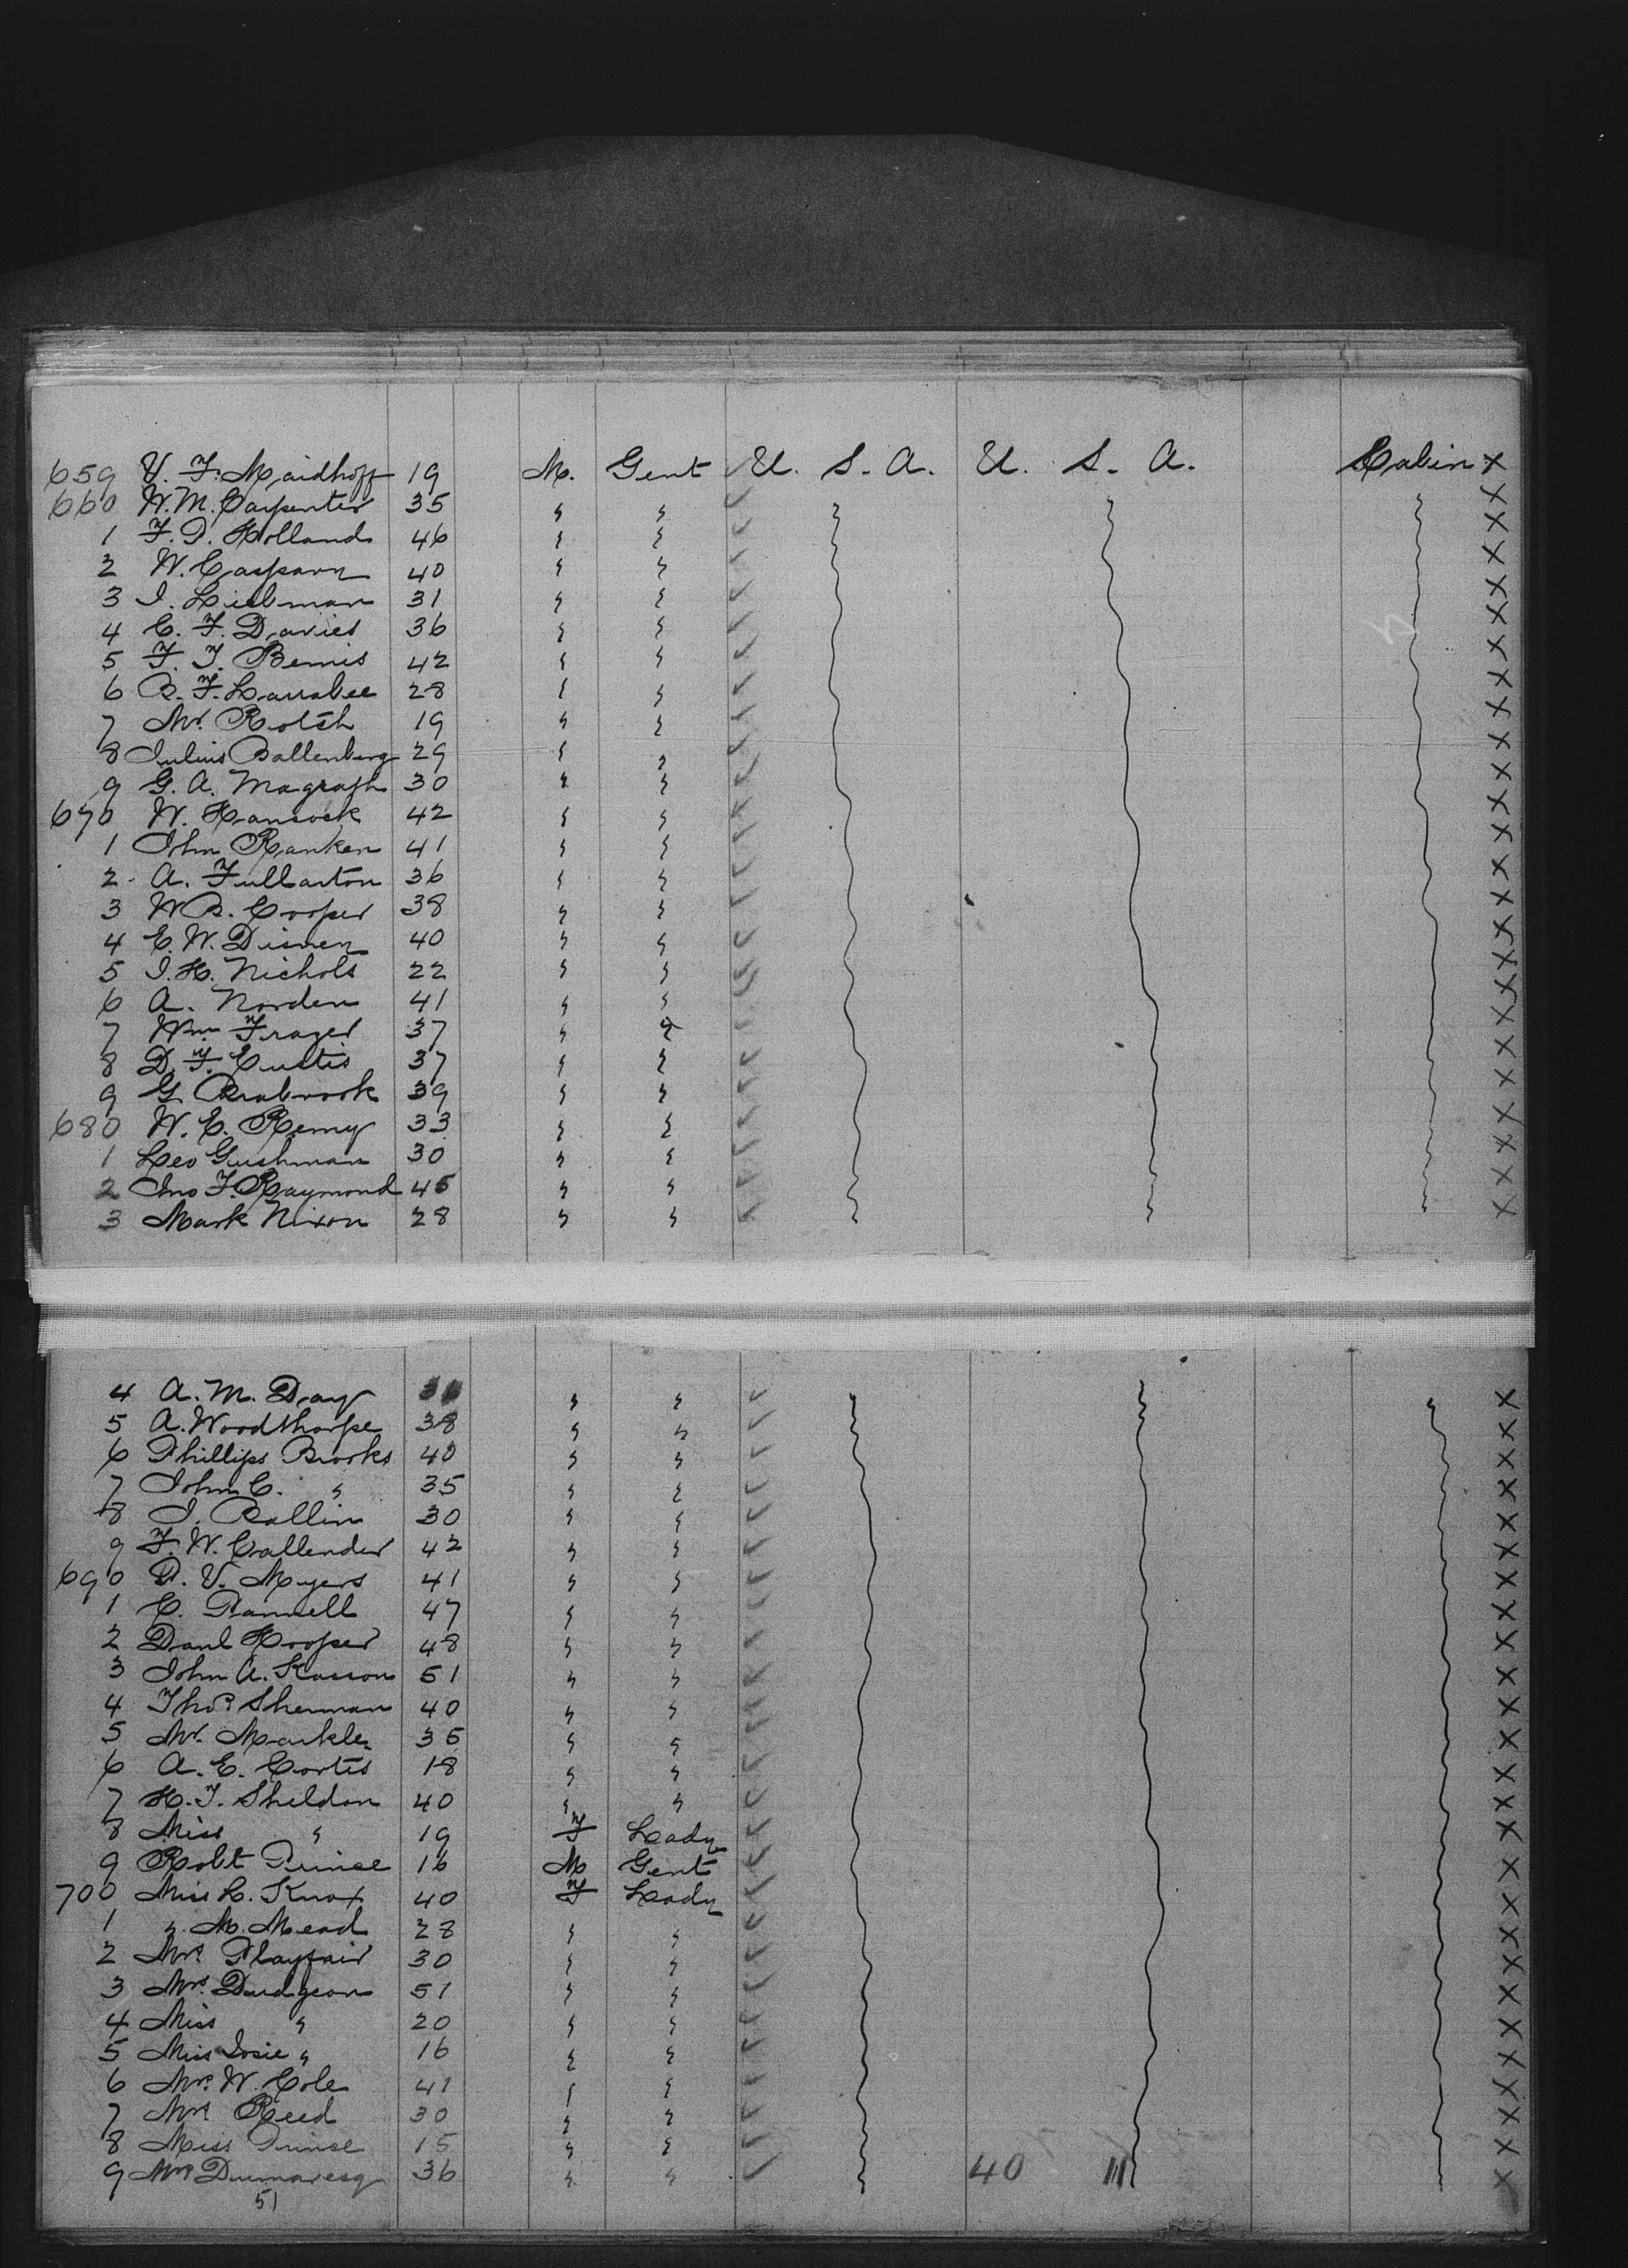 659 V. F. Maidhoff 19 M. Gent U. S. A. U. S. A. Cabin X
660 W. M. Carpenter 35 " " X
1 F. D. Hollands 46 " " X
2 W. Casparn 40 " " X
3 I. Liebman 31 " " X
4 C. F. Davies 36 " " X
5 F. J. Bemis 42 " " X
6 R. F. Larrabee 28 " " X
7 Mr. Rotch 19 " " X
8 Julius Ballenberg 29 " " X
9 G. A. Magrath 30 " " X
670 W. Hancock 42 " " X
1 John Ranken 41 " " X
2 A. Fullarton 36 " " X
3 W. R. Cooper 38 " " X
4 E. W. Dismen 40 " " X
5 J. H. Nichols 22 " " X
6 A. Norden 41 " " X
7 Wm Frazer 37 " " X
8 D. F. Curtis 37 " " X
9 G. Brabrook 39 " " X
680 W. E. Remy 33 " " X
1 Leo Gushman 30 " " X
2 Jno F. Raymond 45 " " X
3 Mark Nixon 28 " " X
4 A. M. Day " " X
5 A. Woodthorpe 38 " " X
6 Phillips Brooks 40 " " X
7 John C. " 35 " " X
8 J. Rallin 30 " " X
9 F. W. Callender 42 " " X
690 P. V. Myers 41 " " X
1 C. Pannell 47 " " X
2 Danl Hooper 48 " " X
3 John A. Kasson 51 " " X
4 Thos Sherman 40 " " X
5 Mr. Markle 35 " " X
6 A. E. Cortis 18 " " X
7 H. J. Sheldon 40 " " X
8 Miss " 19 F Lady X
9 Robt Prince 16 M Gent X
700 Miss L. Knox 40 F Lady X
1 " M. Mead 28 " " X
2 Mrs. Playfair 30 " " X
3 Mrs. Dudgeon 51 " " X
4 Miss " 20 " " X
5 Miss Josie " 16 " " X
6 Mrs. W. Cole 41 " " X
7 Mrs Reed 30 " " X
8 Miss Prince 15 " " X
9 Mrs Dumaresq 36 " " 40 X
51